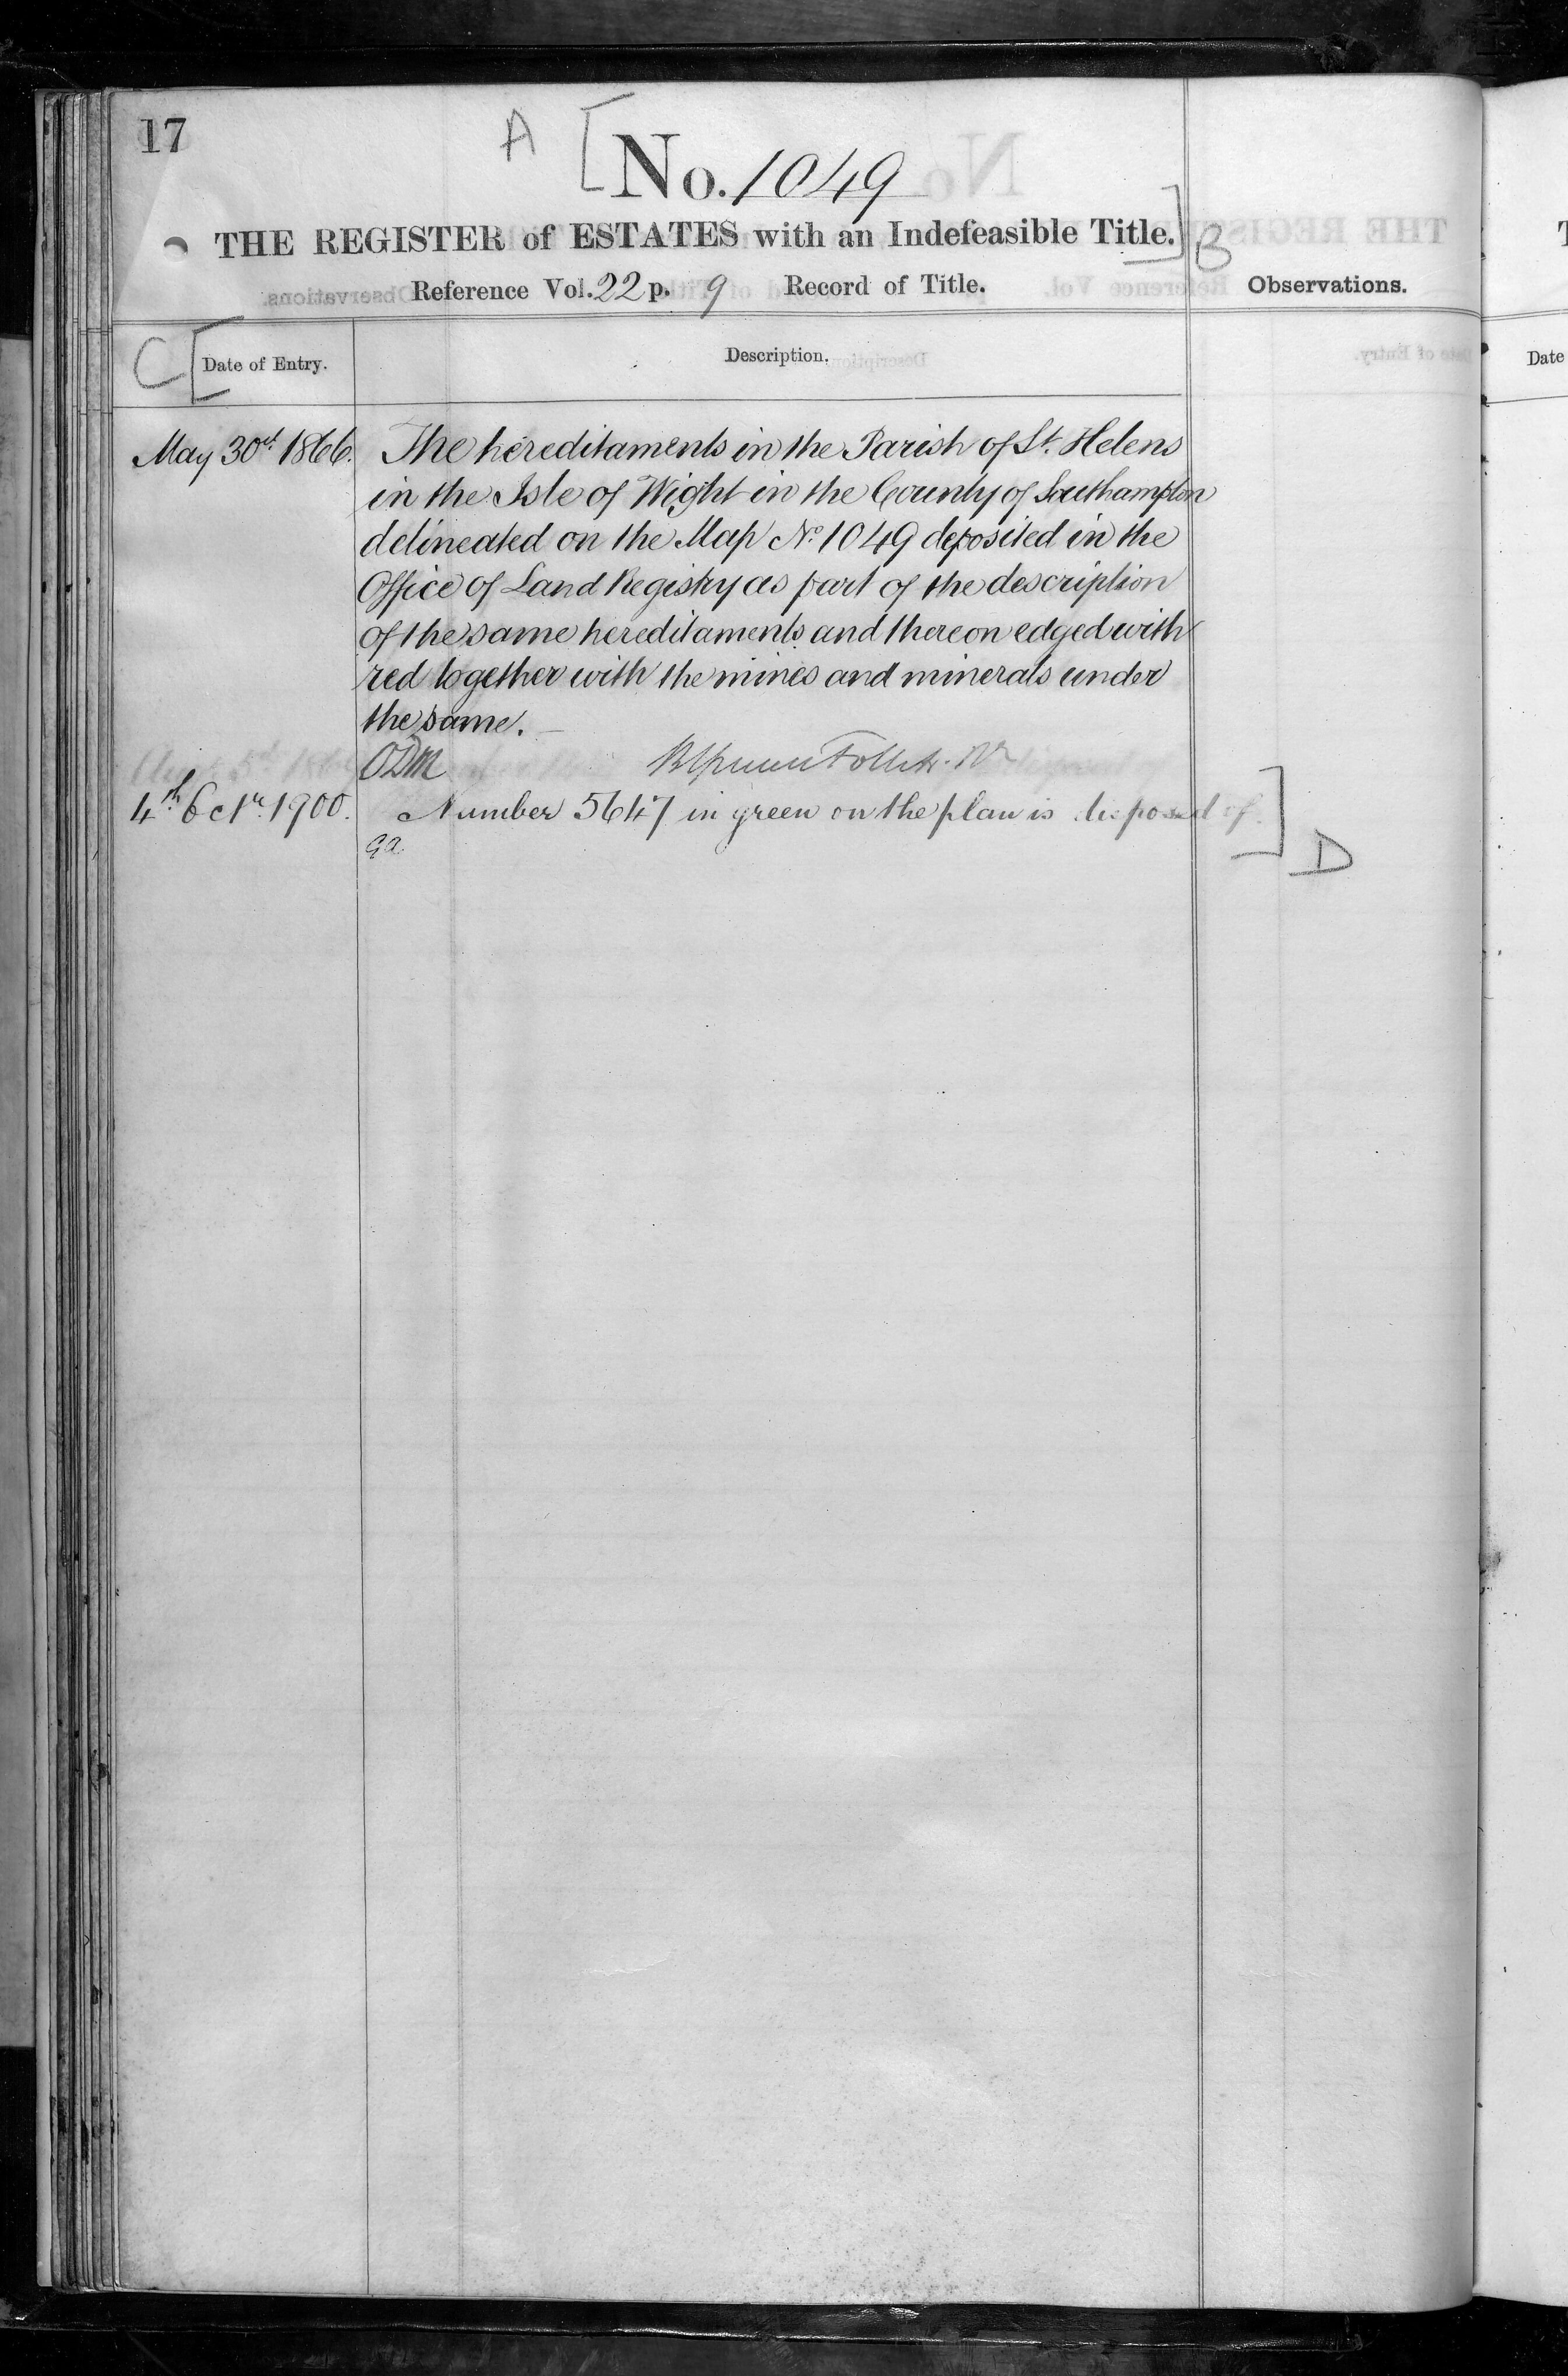 17
A [
No. 1049
THE REGISTER of ESTATES with an Indefeasible Title. ] B
Reference Vol. 22 p. 9 Record of Title. Observations.
C [ Date of Entry. Description.
May 30th 1866. The hereditaments in the Parish of St. Helens
in the Isle of Wight in the County of Southampton
delineated on the Map No. 1049 deposited in the
Office of Land Registry as part of the description
of the same hereditaments and thereon edged with
red together with the mines and minerals under
the same.
ODM Follett
4th Octr. 1900. Number 5647 in green on the plan is disposed of. ] D
Date